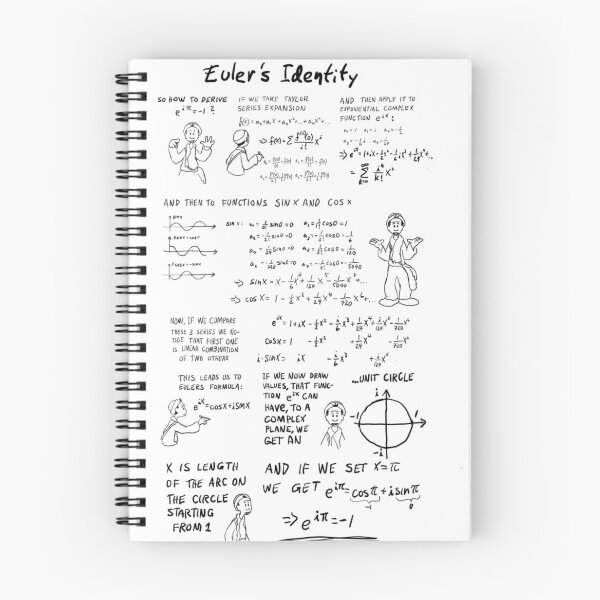 Euler's Identity
SO HOW TO DERIVE
e^iπ = -1 ?
IF WE TAKE TAYLOR
SERIES EXPANSION
AND THEN APPLY IT TO
EXPONENTIAL COMPLEX
FUNCTION e^ix :
AND THEN TO FUNCTIONS SIN X AND COS X
SIN X
⇒ sin X = X - 1/6 X^3 + 1/120 X^5 - 1/5040 X^7 + ...
⇒ cos X = 1 - 1/2 X^2 + 1/24 X^4 - 1/720 X^6 + ...
NOW, IF WE COMPARE
THESE 3 SERIES WE NO-
TICE THAT FIRST ONE
IS LINEAR COMBINATION
OF TWO OTHERS
e^ix = 1 + iX - 1/2 X^2 - i/6 X^3 + 1/24 X^4 + i/120 X^5 - 1/720 X^6
cos X = 1 - 1/2 X^2 + 1/24 X^4 - 1/720 X^6
i · sin X = iX - i/6 X^3 + i/120 X^5
THIS LEADS US TO
EULERS FORMULA:
e^ix = cos X + i sin X
IF WE NOW DRAW
VALUES, THAT FUNC-
TION e^ix CAN
HAVE, TO A
COMPLEX
PLANE, WE
GET AN
...UNIT CIRCLE
i
-1 1
-i
X IS LENGTH
OF THE ARC ON
THE CIRCLE
STARTING
FROM 1
AND IF WE SET X = π
WE GET e^iπ = cos π + i sin π
-1 0
⇒ e^iπ = -1